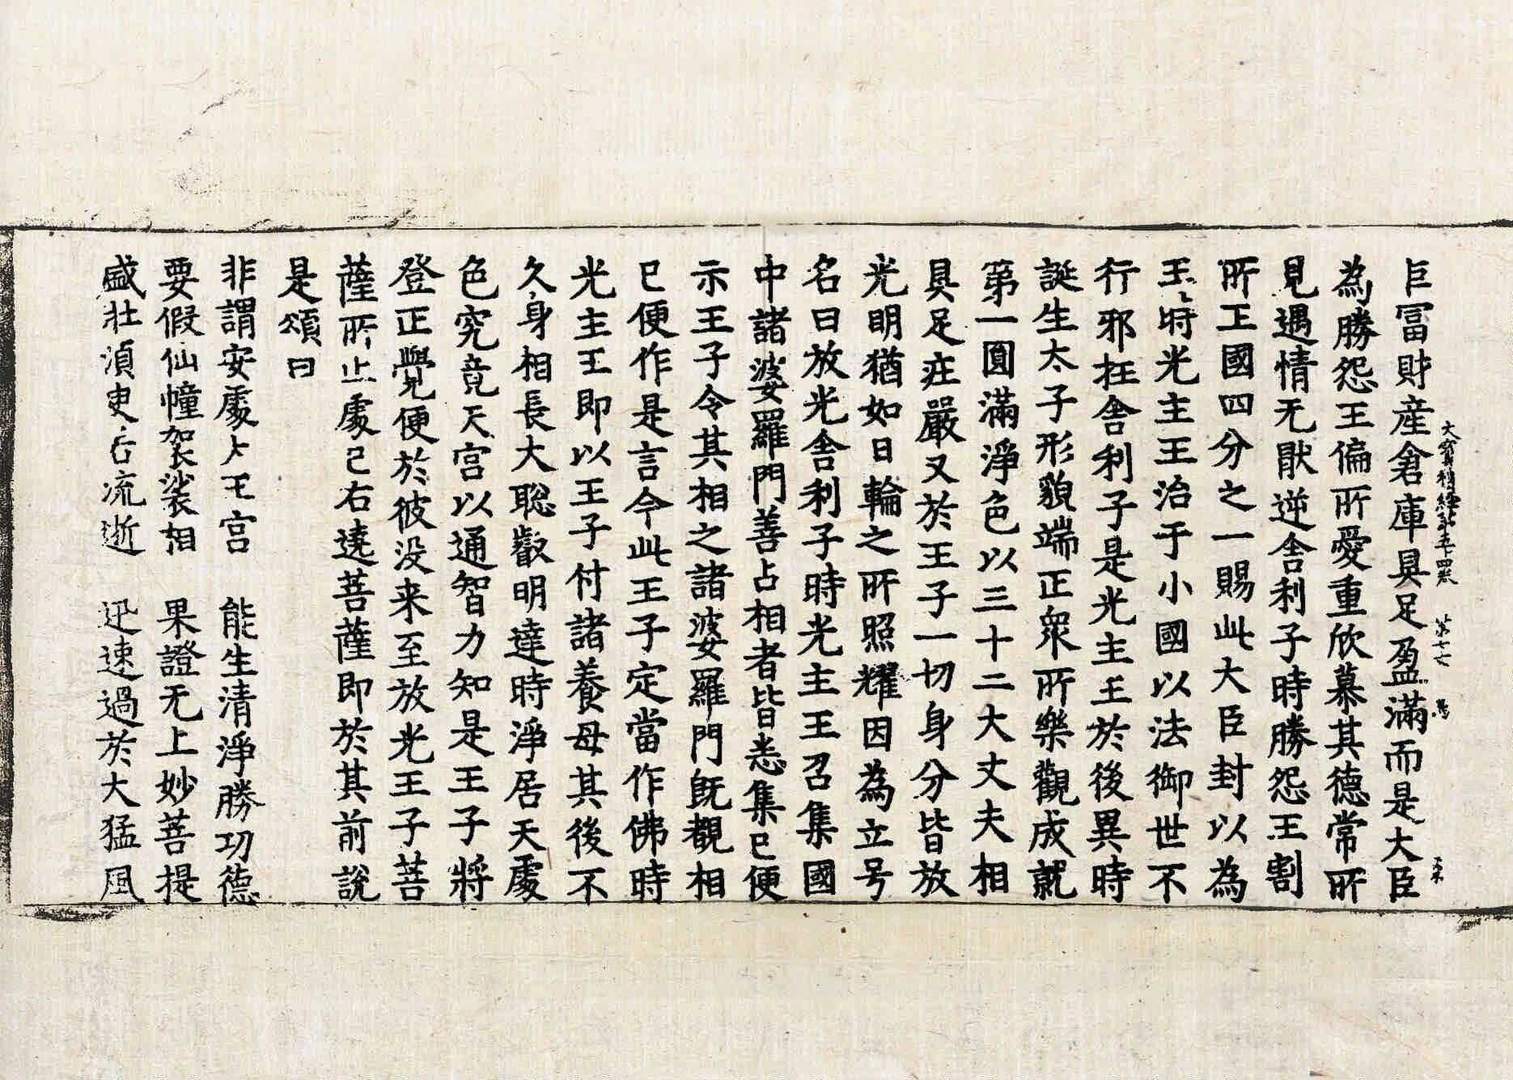 大寶積經第五十四卷 第十七
巨冨財産倉庫具足盈滿而是大臣
為勝怨王偏所愛重欣慕其德常所
見遇情无猒逆舍利子時勝怨王割
所王國四分之一賜此大臣封以為
王時光主王治于小國以法御世不
行邪枉舍利子是光主王於後異時
誕生太子形貌端正衆所樂觀成就
第一圓滿淨色以三十二大丈夫相
具足莊嚴又於王子一切身分皆放
光明猶如日輪之所照耀因為立号
名曰放光舍利子時光主王召集國
中諸婆羅門善占相者皆悉集已便
示王子令其相之諸婆羅門旣覩相
已便作是言今此王子定當作佛時
光主王即以王子付諸養母其後不
久身相長大聡叡明達時淨居天處
色究竟天宮以通智力知是王子將
登正覺便於彼没来至放光王子菩
薩所止處已右遶菩薩即於其前說
是頌曰
非謂安處大王宮 能生清淨勝功德
要假仙幢袈裟相 果證无上妙菩提
盛壮湏臾占流逝 迅速過於大猛風